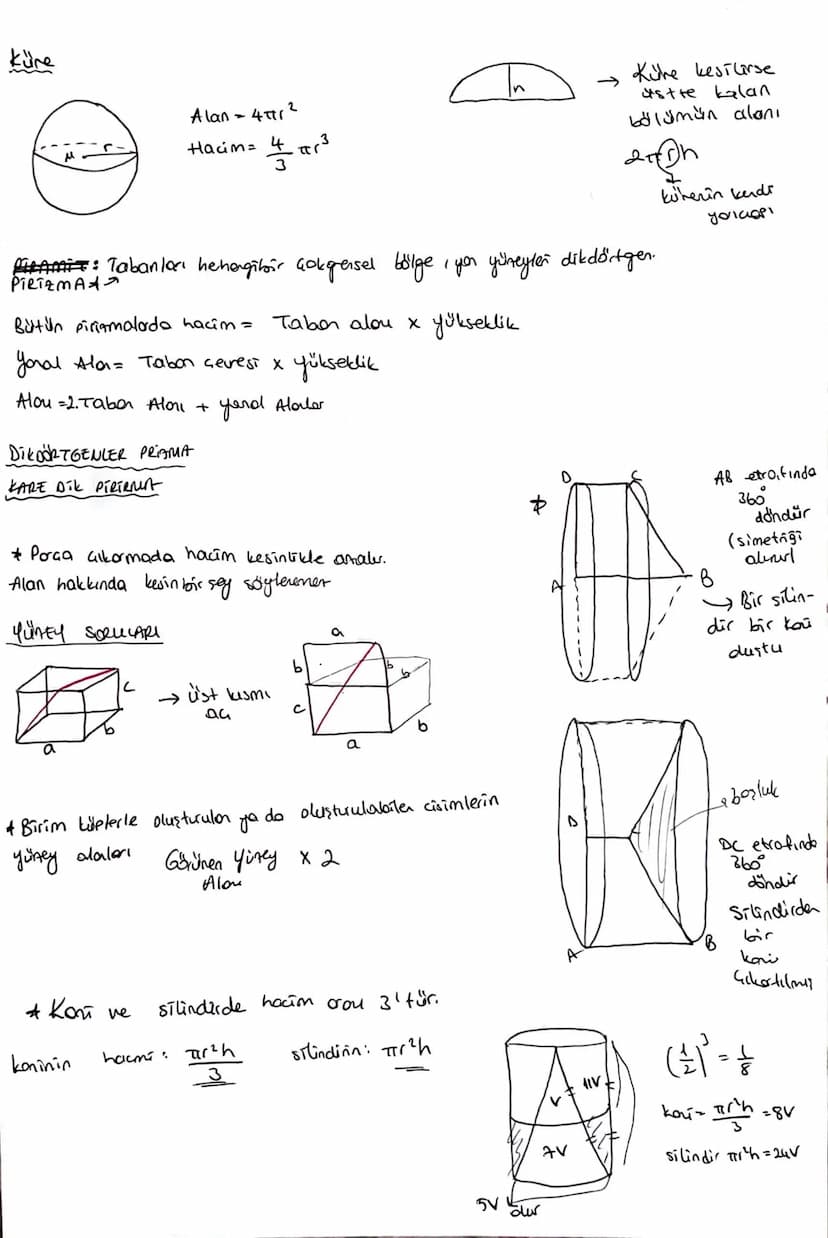 Küre
Alan = 4πr²
Hacim = 4/3 πr³
M r
h
→ Küre kesilirse
üstte kalan
bölümün alanı
2πrh
kürenin kendi
yarıçapı
PİRAMİT: Tabanları herhangibir çokgensel bölge, yan yüzeyleri dikdörtgen.
PİRİZMA
Bütün pirizmalarda hacim = Taban alanı x yükseklik
Yanal Alan = Taban çevresi x yükseklik
Alanı = 2.Taban Alanı + yanal Alanlar
DİKDÖRTGENLER PRİZMA
KARE DİK PİRİZMA
* Parça çıkarmada hacim kesinlikle azalır.
Alan hakkında kesin bir şey söylenemez
D C
A B
AB etrafında
360°
döndür
(simetriği
alınır)
→ Bir silin-
dir bir koni
oluştu
YÜZEY SORULARI
a b c
→ Üst kısmı
aç
a
b b b
c
a b
* Birim küplerle oluşturulan ya da oluşturulabilen cisimlerin
yüzey alanları Görünen Yüzey x 2
Alanı
D
A B
boşluk
DC etrafında
360°
döndür
Silindirden
bir
koni
çıkartılmış
* Koni ve silindirde hacim oranı 3'tür.
koninin hacmi: πr²h/3 silindirin: πr²h
V 11V
7V
5V olur
(1/2)³ = 1/8
koni = πr²h/3 = 8V
silindir πr²h = 24V